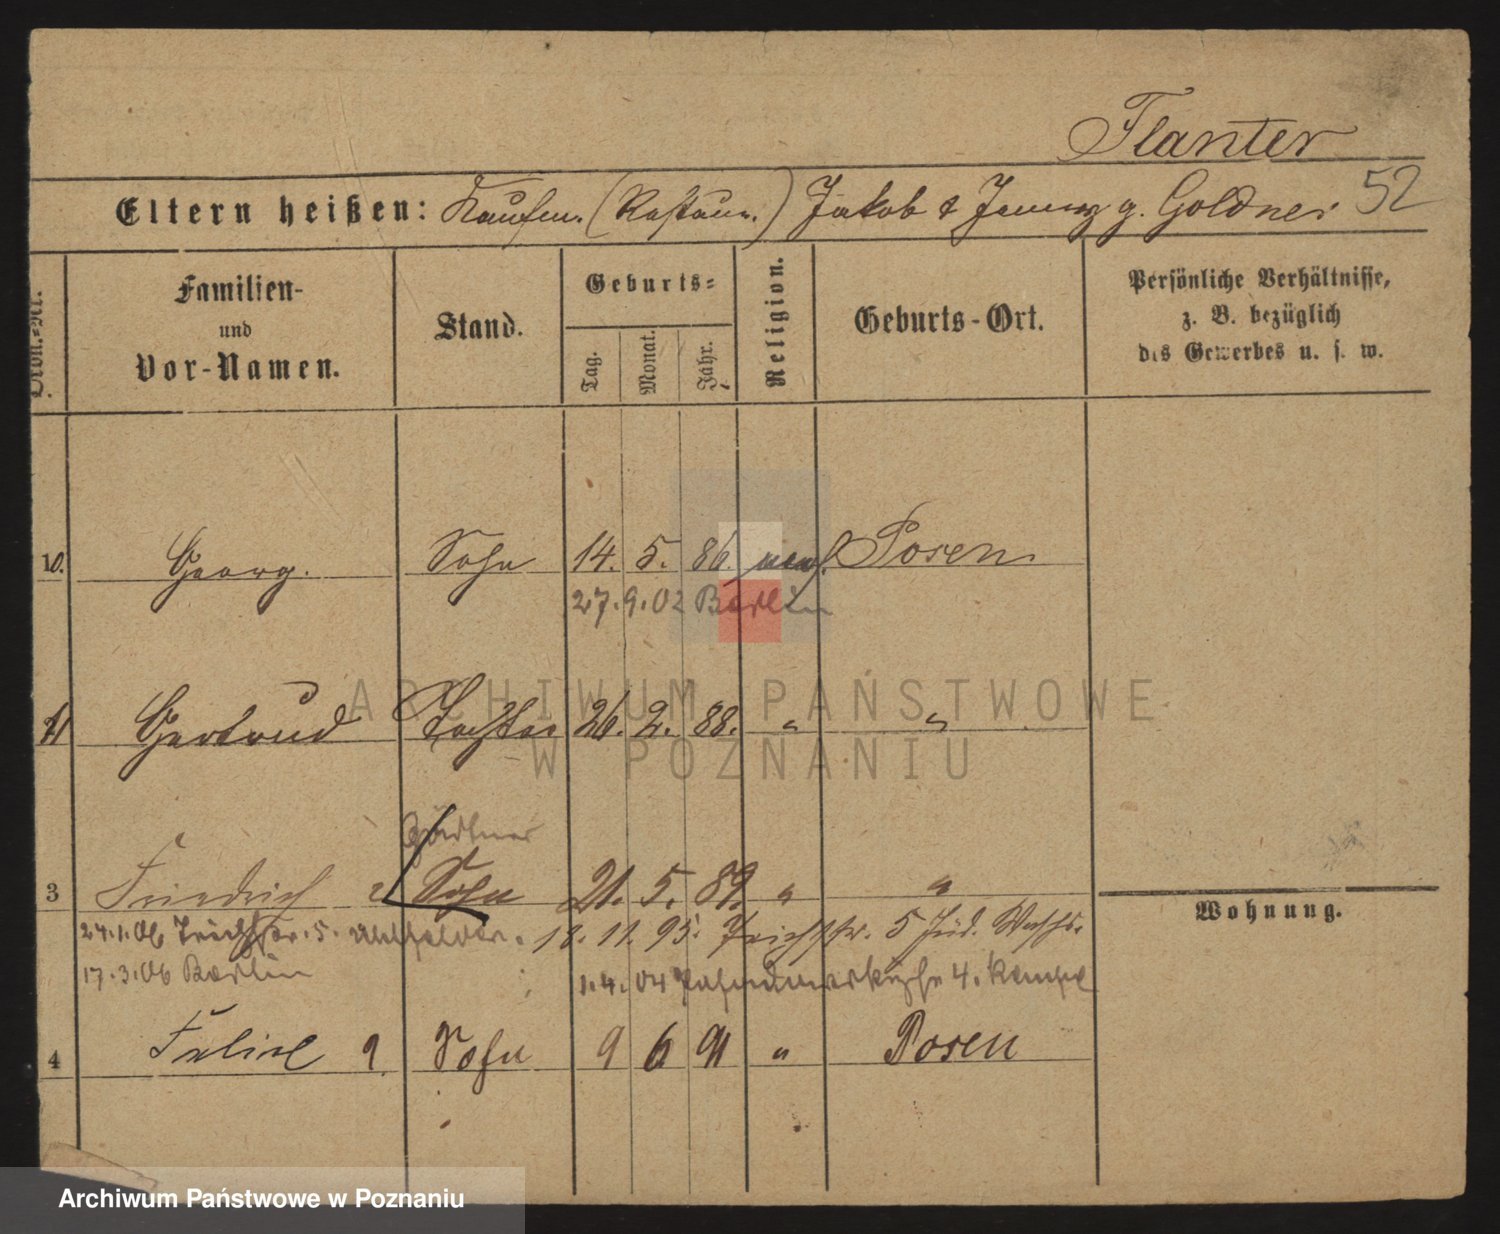 Flanter
52
Eltern heißen: Kaufm. (Restaur.) Jakob & Jenny g. Goldner
Ordn.-Nr.
Familien-
und
Vor-Namen.
Stand.
Geburts-
Tag.
Monat.
Jahr.
Religion.
Geburts-Ort.
Persönliche Verhältnisse,
z. B. bezüglich
des Gewerbes u. s. w.
10. Georg. Sohn 14. 5. 86. mos. Posen.
27.9.02 Berlin
ARCHIWUM PAŃSTWOWE
11 Gertrud Tochter 26. 2. 88. " "
W POZNANIU
Gärtner
3 Friedrich Sohn 21. 5. 89. " "
Wohnung.
24.1.06 5. 18. 11. 95. 5
17.3.06 Berlin 1.4.04 4.
4 Felix Sohn 9 6 91 " Posen
Archiwum Państwowe w Poznaniu